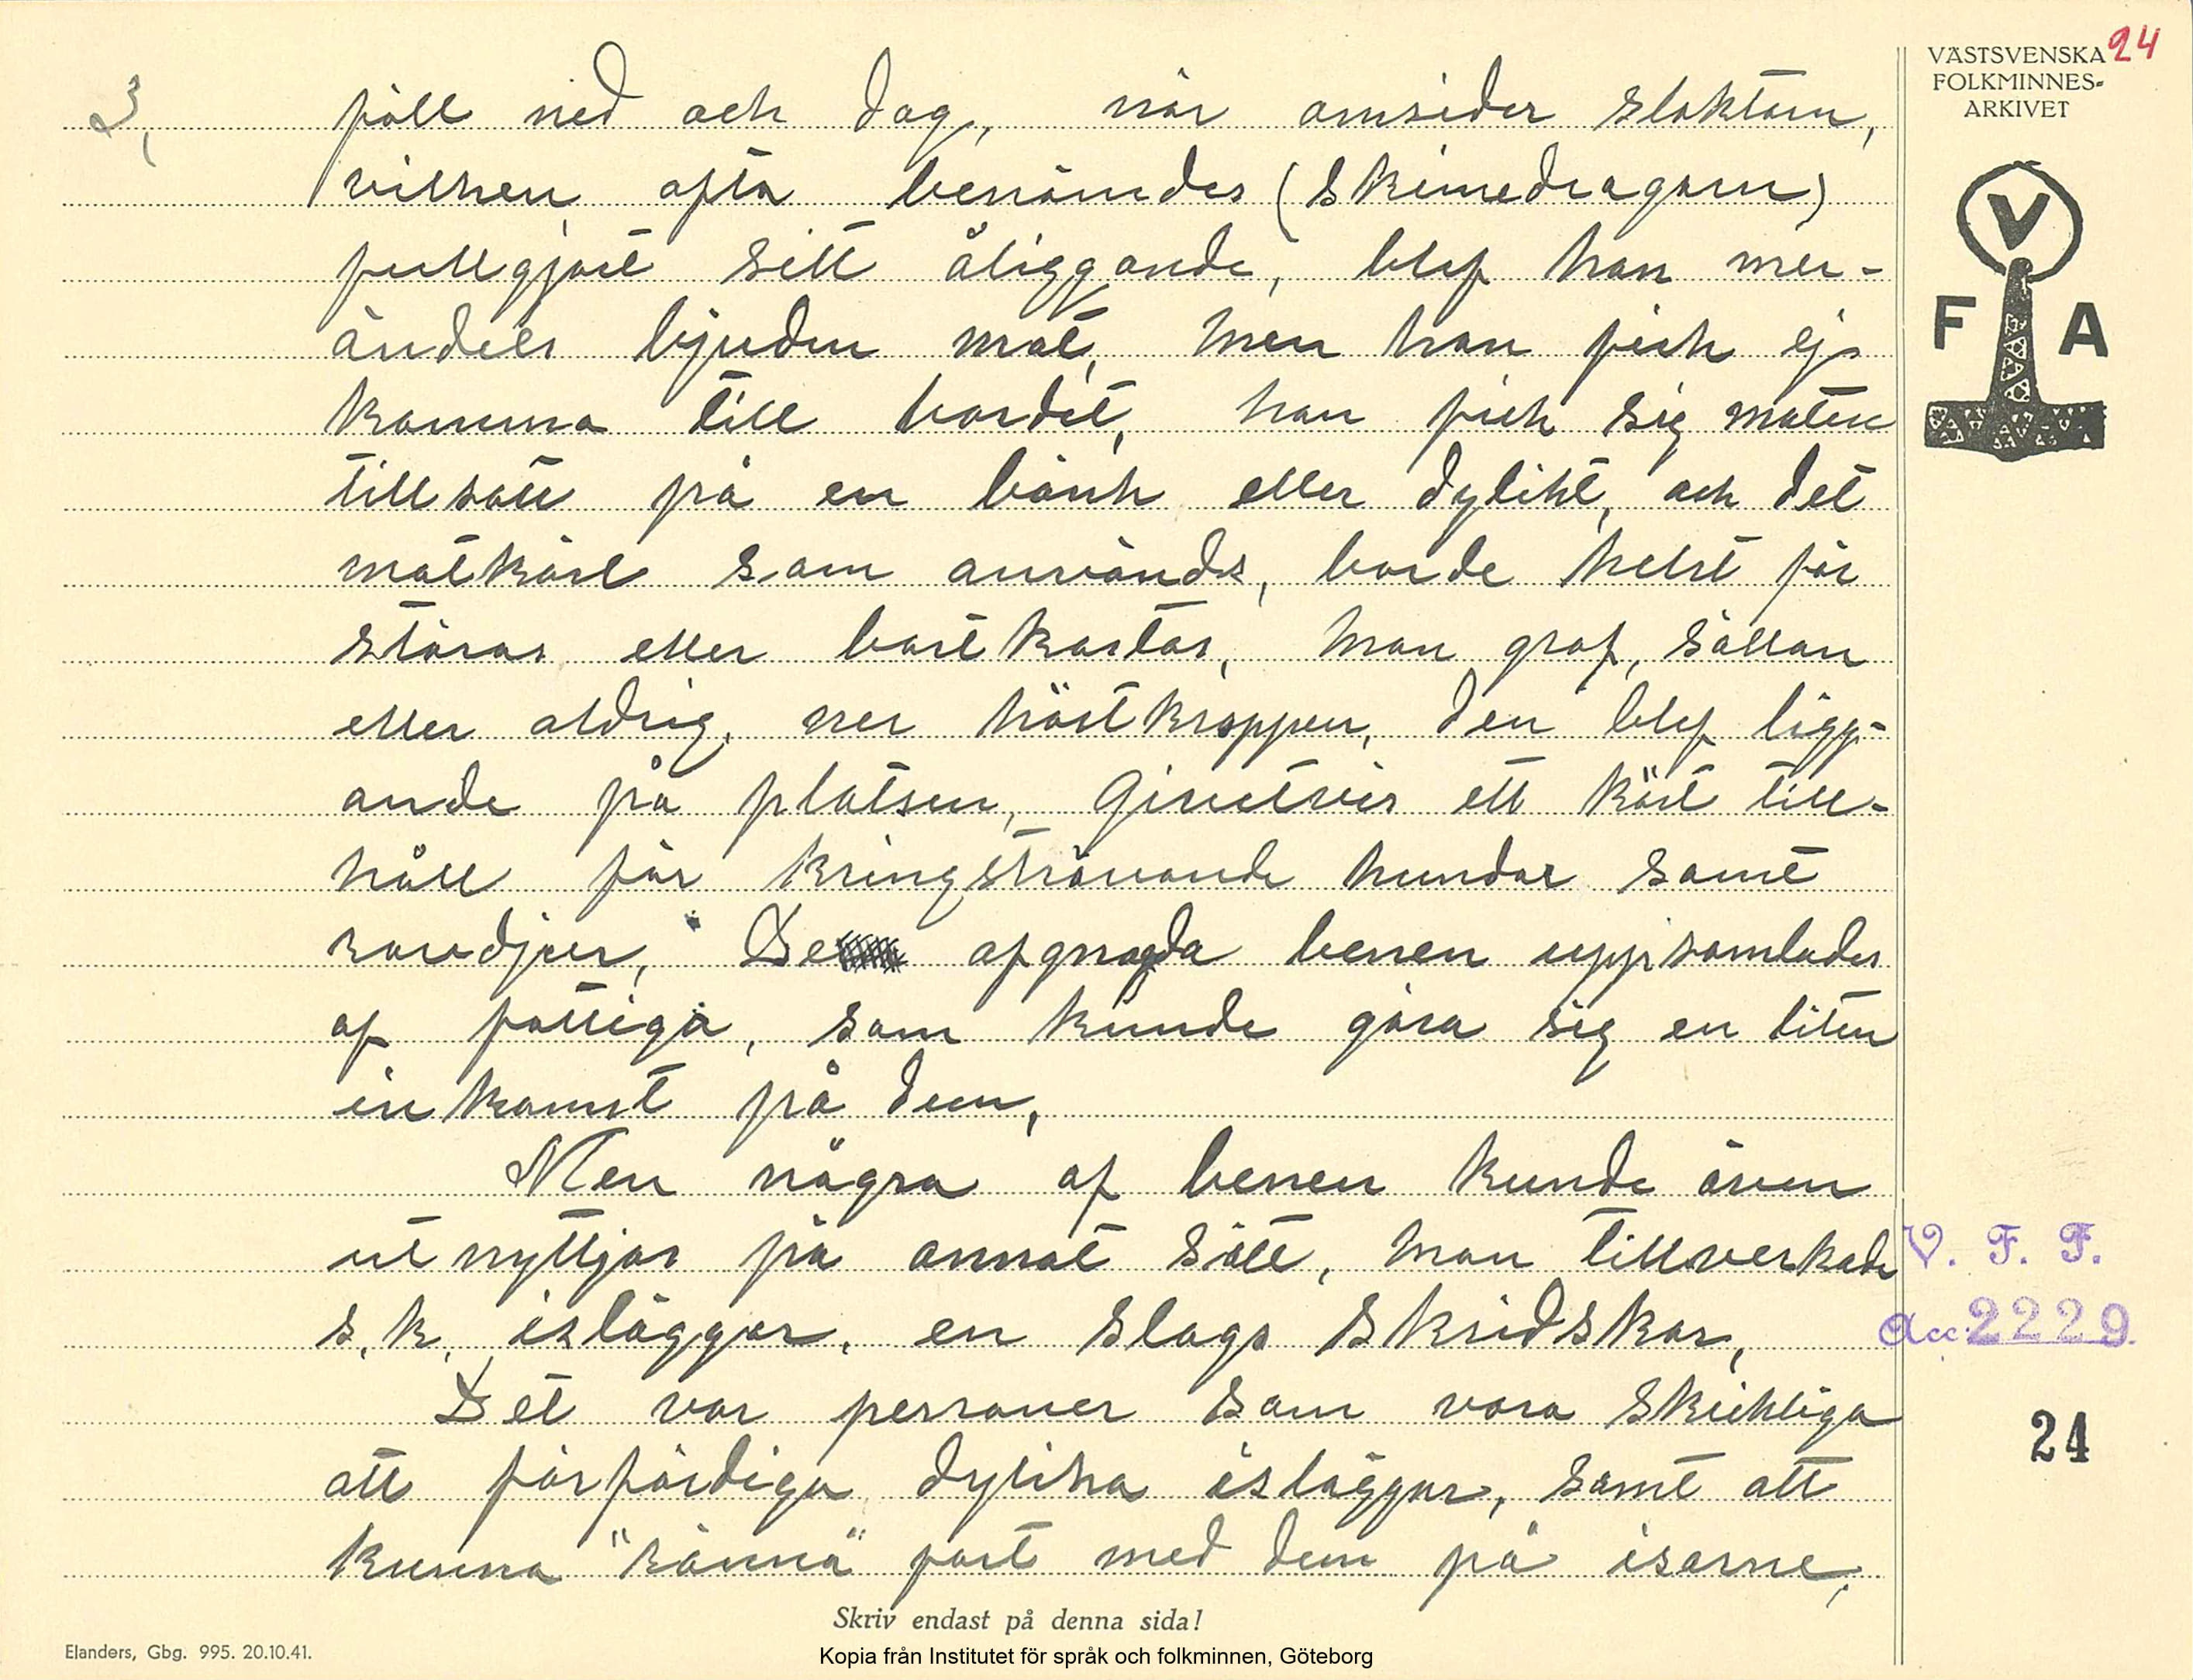 24
VÄSTSVENSKA
FOLKMINNES-
ARKIVET
V
F A
3,
föll ned och dog, när omsider slaktarn,
vilken ofta benämdes (Skinnedragarn)
fullgjort sitt åliggande, blef han mer-
ändels bjuden mat, men han fick ej
komma till bordet, han fick sig maten
tillsatt på en bänk eller dylikt, och det
matkärl som användes, borde helst för
störas eller bortkastas, man graf, sällan
eller aldrig, ner hästkroppen, den blef ligg-
ande på platsen, Givetvis ett kärt till-
håll för kringströvande hundar samt
rovdjur, De afgnagda benen uppsamlades
af fattiga, som kunde göra sig en liten
inkomst på dem,
Men några af benen kunde även
utnyttjas på annat sätt, man tillverkade
s.k. isläggar, en slags skridskor,
Det var personer som vara skickliga
att förfärdiga dylika isläggar, samt att
kunna "ränna" fort med dem på isarne,
V. F. F.
Acc. 2229
24
Skriv endast på denna sida!
Elanders, Gbg. 995. 20.10.41.
Kopia från Institutet för språk och folkminnen, Göteborg